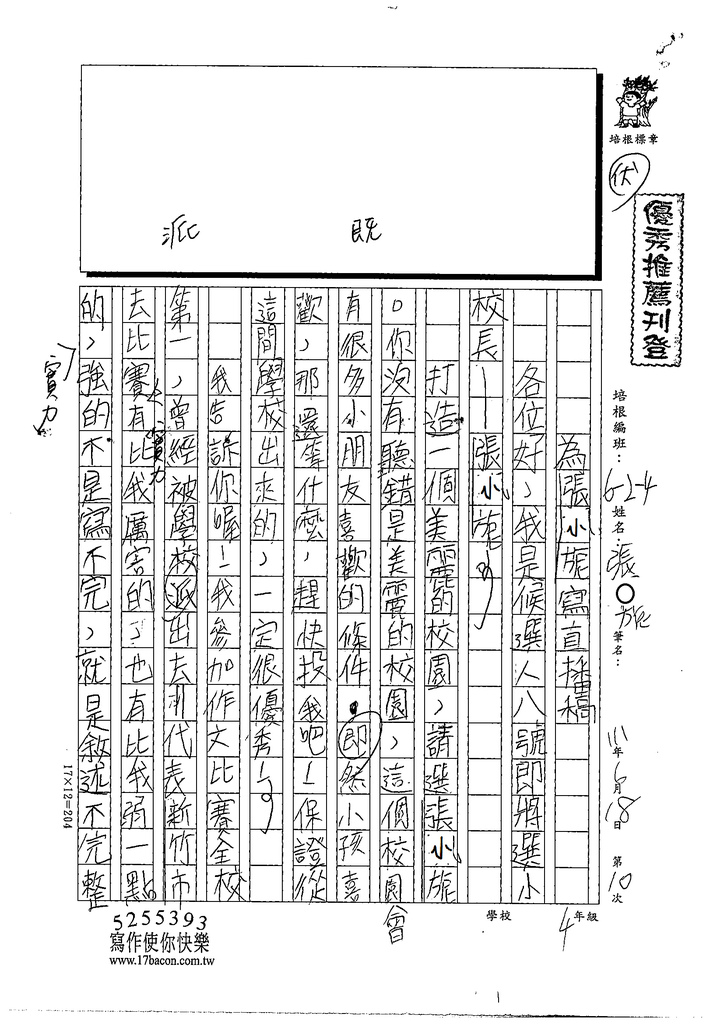 培根標章
優秀推薦刊登
培根編班：6-2-4 姓名：張○旎 筆名：
111年6月18日 第10次
4年級
學校
派 既
為張小旎寫直播稿
各位好，我是候選人八號即將選小
校長—張小旎。
打造一個美麗的校園，請選張小旎
。你沒有聽錯是美麗的校園，這個校園會
有很多小朋友喜歡的條件。即然小孩喜
歡，那還等什麼，趕快投我吧！保證從
這間學校出來的，一定很優秀！
我告訴你喔！我參加作文比賽全校
第一，曾經被學校派出去代表新竹市
去比賽有比我厲害的，也有比我弱一點
的，強的不是寫不完，就是敘述不完整
實力
實力
17×12=204
5255393
寫作使你快樂
www.17bacon.com.tw